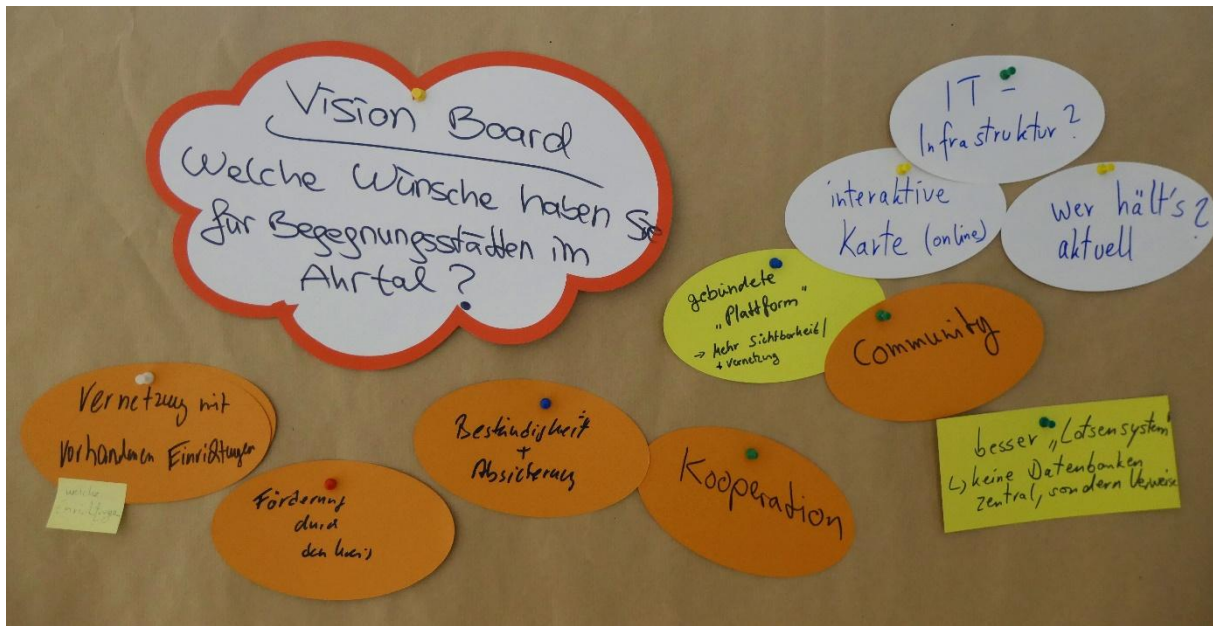 Vision Board
Welche Wünsche haben Sie
für Begegnungsstätten im
Ahrtal?
IT-
Infrastruktur?
interaktive
Karte (online)
wer hält's
aktuell?
gebündete
„Plattform"
→ Mehr Sichtbarkeit/
+ Vernetzung
Community
Vernetzung mit
vorhandenen Einrichtungen
welche
Einrichtungen
Förderung
durch
den Kreis
Beständigkeit
+
Absicherung
Kooperation
besser „Lotsensystem"
↳ keine Datenbanken
zentral, sondern Verweise